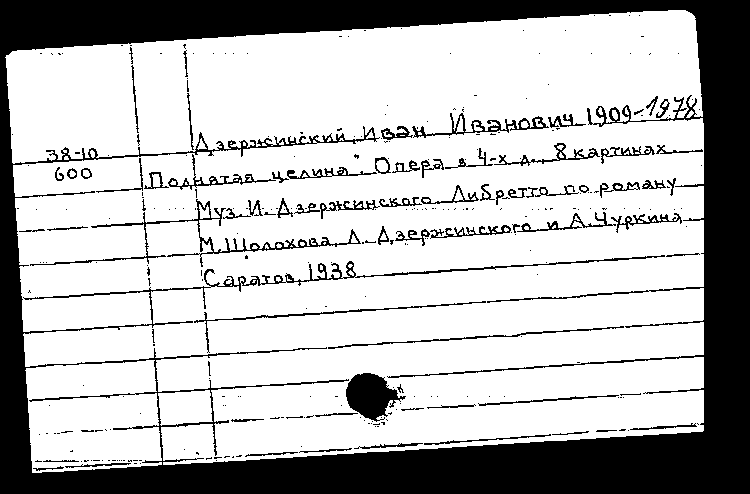 38-10
600
Дзержинский, Иван Иванович 1909-1978
"Поднятая целина". Опера в 4-х д., 8 картинах.
Муз. И. Дзержинского. Либретто по роману
М. Шолохова, Л. Дзержинского и А. Чуркина.
Саратов, 1938